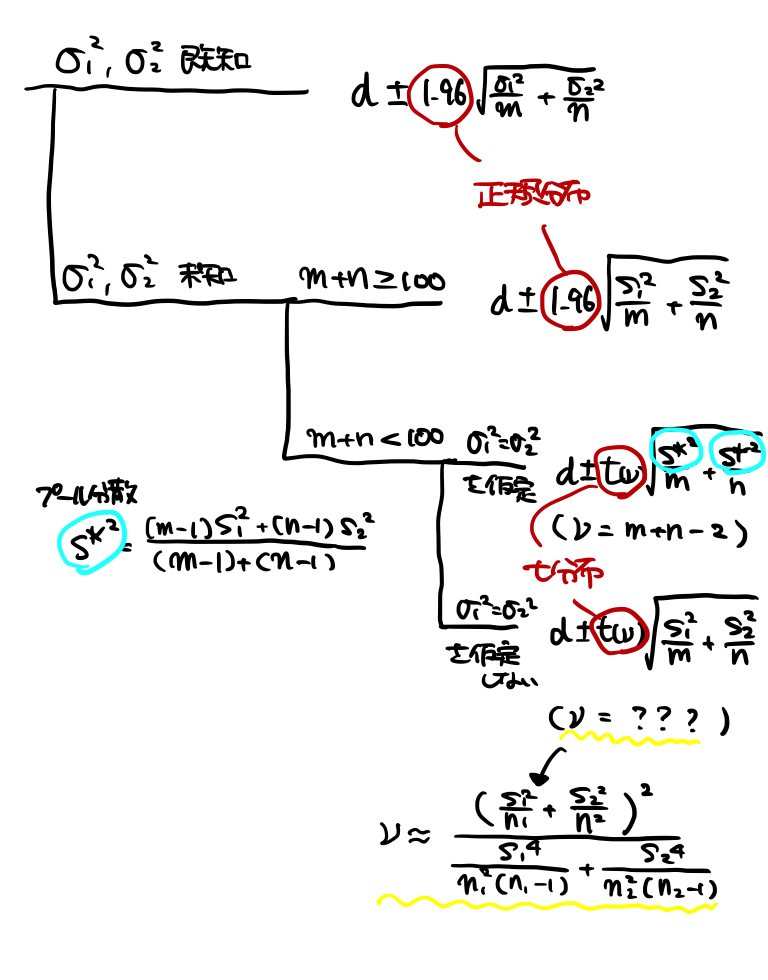 σ₁², σ₂² 既知
d ± 1.96 √(σ₁²/m + σ₂²/n)
正規分布
σ₁², σ₂² 未知
m+n ≥ 100
d ± 1.96 √(S₁²/m + S₂²/n)
m+n < 100
σ₁²=σ₂²
を仮定
d ± t(ν) √(S*²/m + S*²/n)
(ν = m+n-2)
プール分散
S*² = ((m-1)S₁²+(n-1)S₂²)/((m-1)+(n-1))
t分布
σ₁²=σ₂²
を仮定
しない
d ± t(ν) √(S₁²/m + S₂²/n)
(ν = ???)
ν ≈ (S₁²/n₁ + S₂²/n²)² / (S₁⁴/(n₁²(n₁-1)) + S₂⁴/(n₂²(n₂-1)))